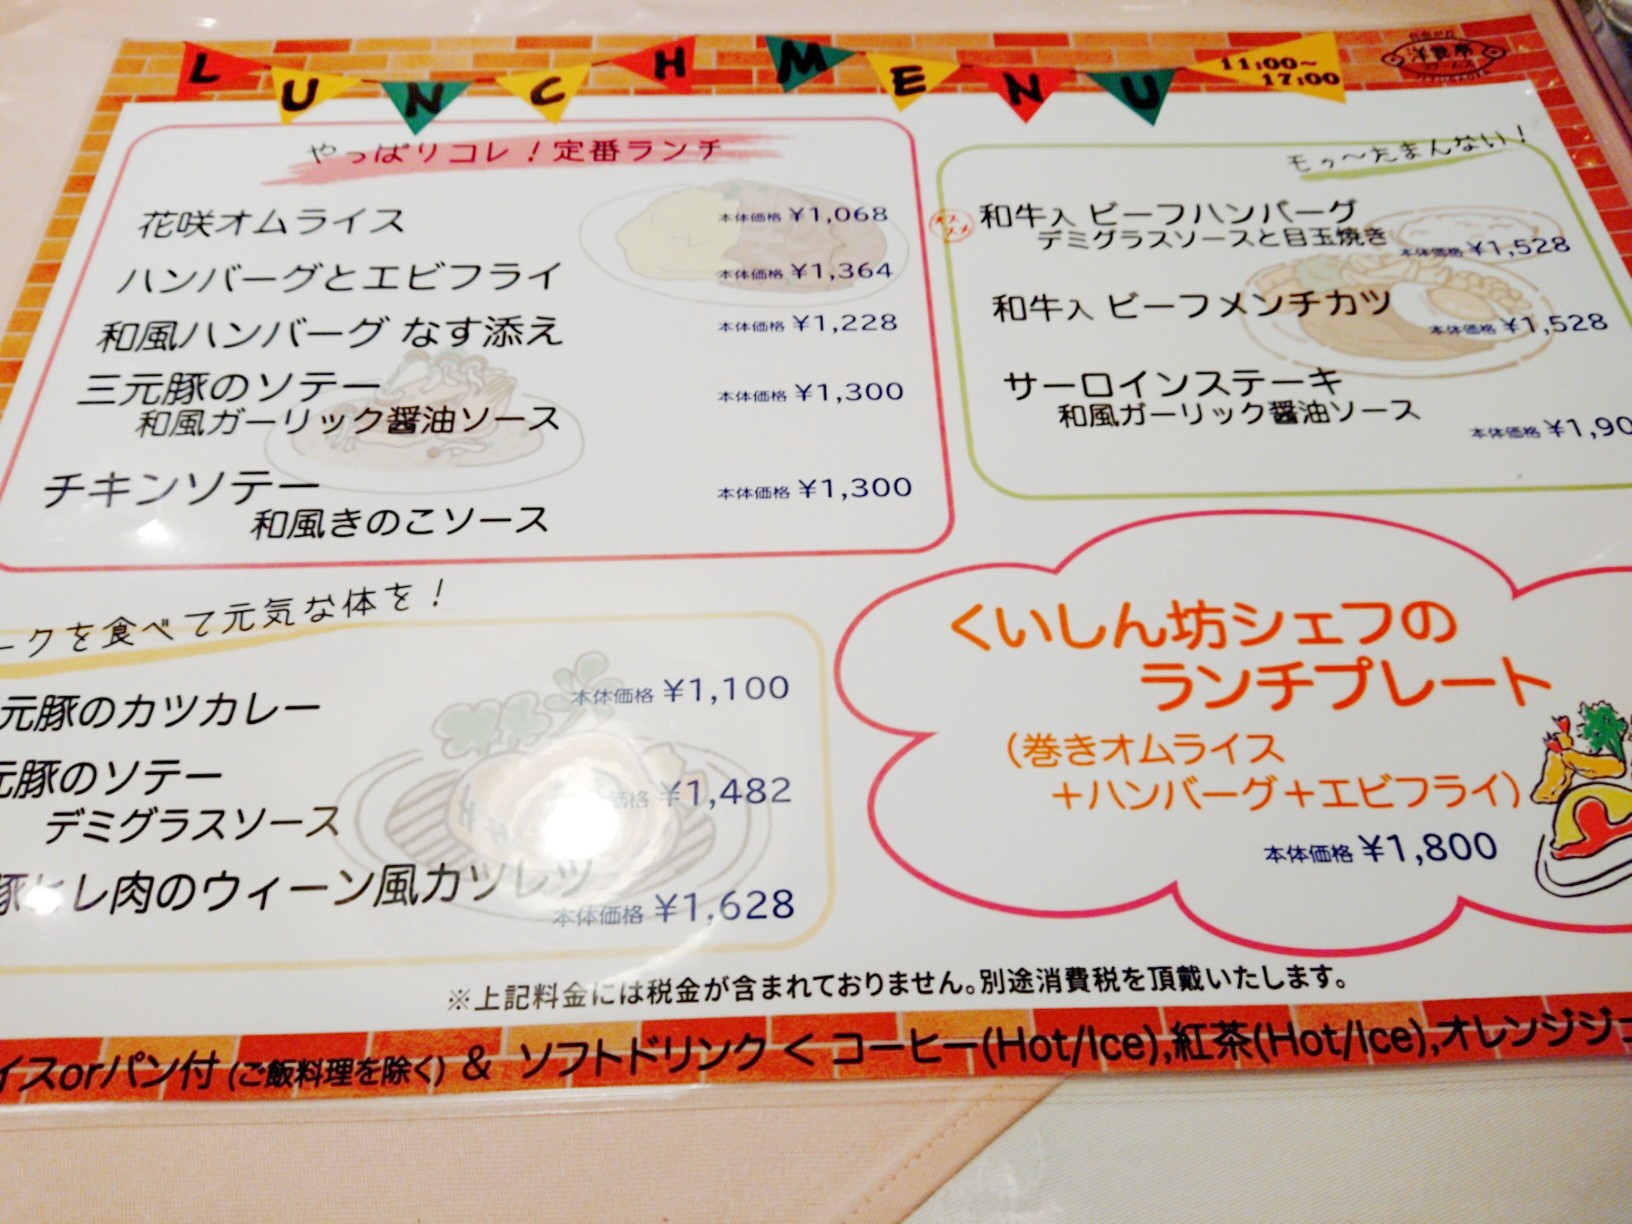 LUNCH MENU
11:00~
17:00
洋食亭
やっぱりコレ！定番ランチ
花咲オムライス 本体価格 ¥1,068
ハンバーグとエビフライ 本体価格 ¥1,364
和風ハンバーグ なす添え 本体価格 ¥1,228
三元豚のソテー 本体価格 ¥1,300
和風ガーリック醤油ソース
チキンソテー 本体価格 ¥1,300
和風きのこソース
モゥ～たまんない！
オススメ 和牛入 ビーフハンバーグ
デミグラスソースと目玉焼き 本体価格 ¥1,528
和牛入 ビーフメンチカツ 本体価格 ¥1,528
サーロインステーキ
和風ガーリック醤油ソース
本体価格 ¥1,90
ークを食べて元気な体を！
元豚のカツカレー 本体価格 ¥1,100
元豚のソテー 価格 ¥1,482
デミグラスソース
豚ヒレ肉のウィーン風カツレツ
本体価格 ¥1,628
くいしん坊シェフの
ランチプレート
（巻きオムライス
＋ハンバーグ＋エビフライ）
本体価格 ¥1,800
※上記料金には税金が含まれておりません。別途消費税を頂戴いたします。
イスorパン付(ご飯料理を除く) & ソフトドリンク < コーヒー(Hot/Ice),紅茶(Hot/Ice),オレンジジ